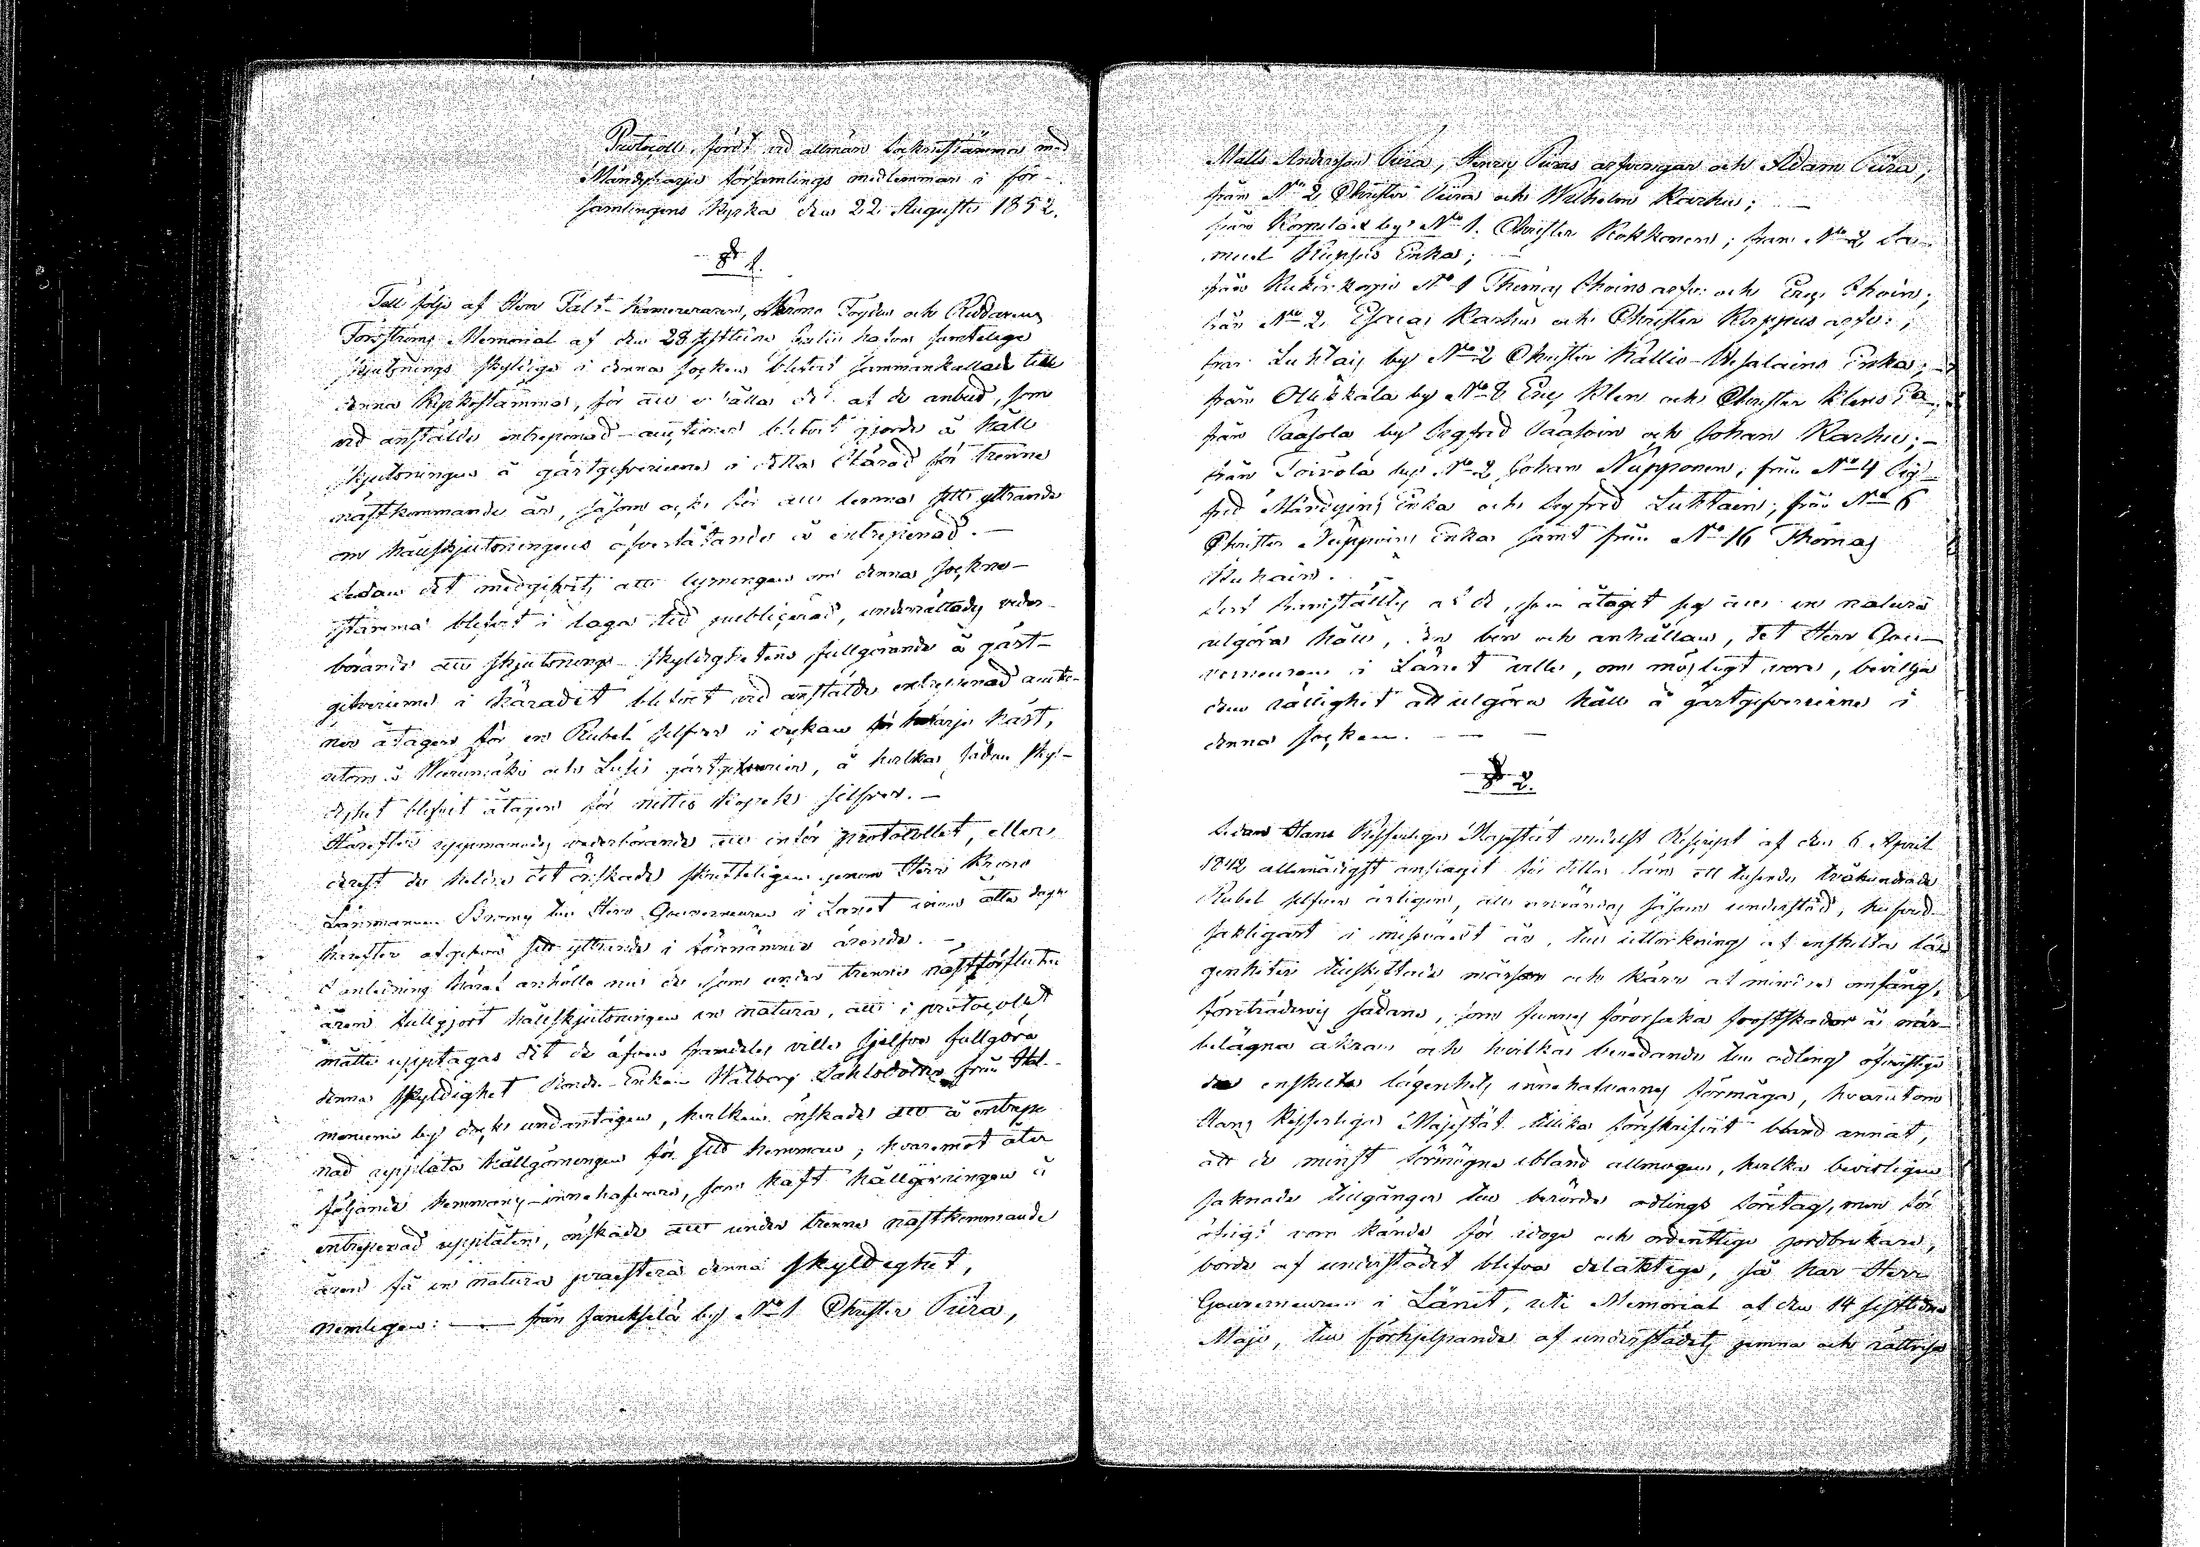 Protocoll, fördt vid allmän Sockenstämma med
Mäntyharju församlings medlemmar i för-
samlingens Kyrka den 22 Augusti 1852.
§ 1.
Till följe af Herr Fält-Kamereraren, Krono Fogden och Riddaren
Forsströms Memorial af den 28 sistledne Julii hafva samtelige
skjutsnings skyldige i denna Socken blifvit sammankallade till
denna Kyrkostämma, för att de anbud, som
vid anställde entreprenad-auctioner blifvit gjorde å håll
skjutsningen å gästgifverierne i detta Härad för trenne
nästkommande år, såsom ock för att lemna sitt yttrande
om hållskjutsningens öfverlåtande å entreprenad. —
Sedan det medgifvits att lysningen om denna Sockne-
stämma blifvit i laga tid publicerad, underrättades veder-
börande att skjutsnings-skyldighetens fullgörande å gäst-
gifverierne i Häradet blifvit vid anställd entreprenad auktio-
ner åtagen för en Rubel silfver i veckan för hvarje häst,
utom å Wuorimäki och Lusi gästgifverier, å hvilka sådan skyl-
dighet blifvit åtagen för nittio Kopek silfver. —
Härefter uppmanades vederbörande att inför protocollet, eller
derest de hellre det önskade skrifteligen genom Herr Krono
Länsmannen Brummy till Herr Gouverneuren i Länet inom åtta dagar
härefter afgifva sitt yttrande i förenämnde ärende. —
I anledning häraf anhöllo nu de som under trenne nästförflutne
åren fullgjort hållskjutsningen in natura, att i protocollet
måtte upptagas det de äfven framdeles ville sjelfva fullgöra
denna skyldighet Bonde-Enkan Walborg från
by dock undantagen, hvilken önskade att å entrepre
nad upplåta hållgörningen för sitt hemman; hvaremot åter
följande hemmans-innehafvare, som haft hållgörningen å
entreprenad upplåten, önskade att under trenne nästkommande
åren få in natura præstera denna skyldighet,
nemligen: — från Janiksela by No 1 Christer Pura,
Matts Andersson Pura, Henric Puras arfvingar och Adam Pura,
från No 2 Christer Pura och Wilhelm Karhu; —
från Kompala by No 1. Christer Kokkonen; från No 2 Sa-
muel Kuppis Enka;
från No 1 Thomas Ihoins arfv: och Eric Ihoin;
från No 2. Esaias Karhu och Christer Kuppus arfv:;
från Luhtais by No 2 Christer Kallio-Wesalains Enka; —
från Ollikkala by No 8 Eric Klen och Christer Klens
från Paasola by Sigfrid Paasoin och Johan Karhu; —
från Toivola by No 2 Johan Nupponen; från No 4 Sig-
frid Mäntyins Enka och Sigfrid Luhtain; från No 6
Christer Nuppoins Enka samt från No 16 Thomas
Ruhain.
hemställts af de, som åtagit sig att in natura
utgöra håll, en bön och anhållan, det Herr Gou-
verneuren i Länet ville, om möjligt vore, bevilja
dem rättighet att utgöra håll å gästgifverierne i
denna Socken. — —
§ 2.
Sedan Hans Kejserliga Majestät medelst Rescript af den 6 April
1842 allernådigst anslagit för detta län ett tusende tvåhundrade
Rubel silfver årligen, att användas såsom understöd, hufvud-
sakligast i missväxt år, till uttorkning af enskilta lä-
genheter tillskiftade mossar och kärr af mindre omfång,
företrädesvis sådane, som funnes förorsaka frostskador å när-
belägna åkrar och hvilkas beredande till odling öfverstige
den enskilta lägenhets innehafvarens förmåga, hvarutom
Hans Kejserliga Majestät tillika föreskrifvit bland annat,
att de minst förmögna ibland allmogen, hvilka bevisligen
saknade tillgångar till berörde odlings företag, men för
öfrigt vore kände för idoge och ordentlige jordbrukare,
borde af understödet blifva delaktige, så har Herr
Gouverneuren i Länet, uti Memorial af den 14 sistledne
Maji, till förhjelpande af understödets jemna och rättvisa